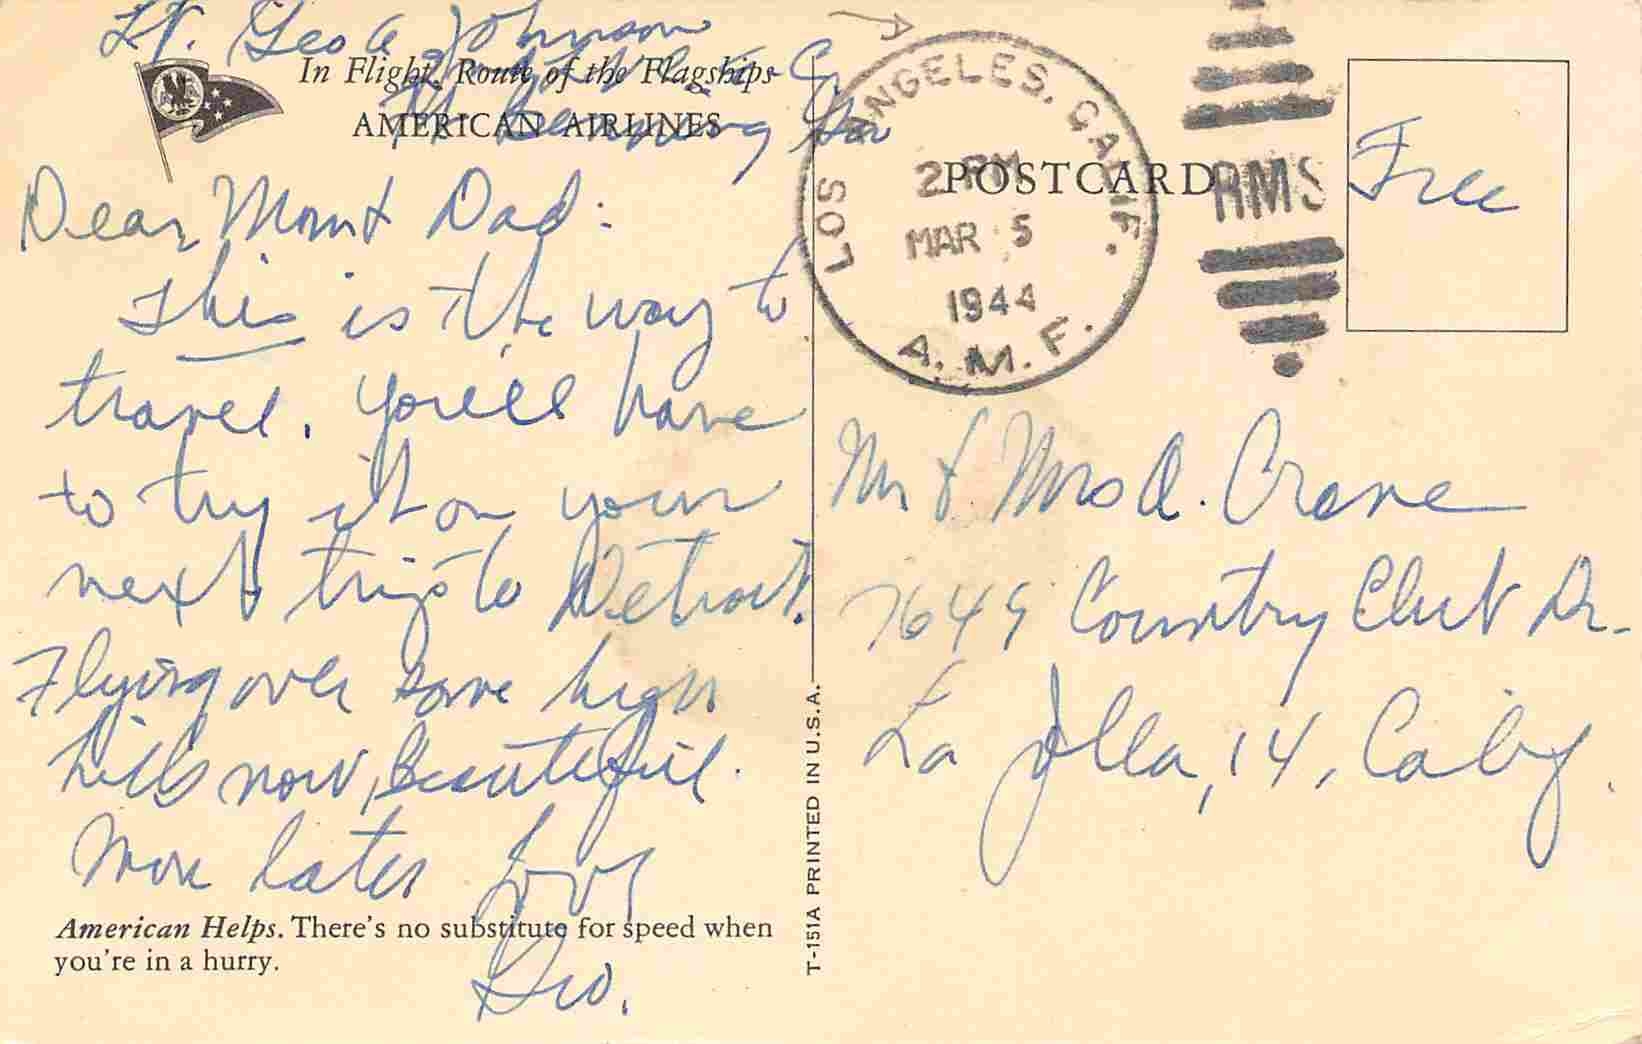 Lt. Geo A Johnson
In Flight, Route of the Flagships
AMERICAN AIRLINES
Ft Benning Ga
Dear Mom & Dad:
This is the way to
travel. You'll have
to try it on your
next trip to Detroit.
Flying over some high
hills now, Beautiful.
More later Love
Geo.
American Helps. There's no substitute for speed when
you're in a hurry.
T-151A PRINTED IN U.S.A.
POSTCARD
LOS ANGELES, CALIF.
2 PM
MAR 5
1944
A.M.F.
RMS
Free
Mr & Mrs A. Crane
7645 Country Club Dr.
La Jolla, 14, Calif.